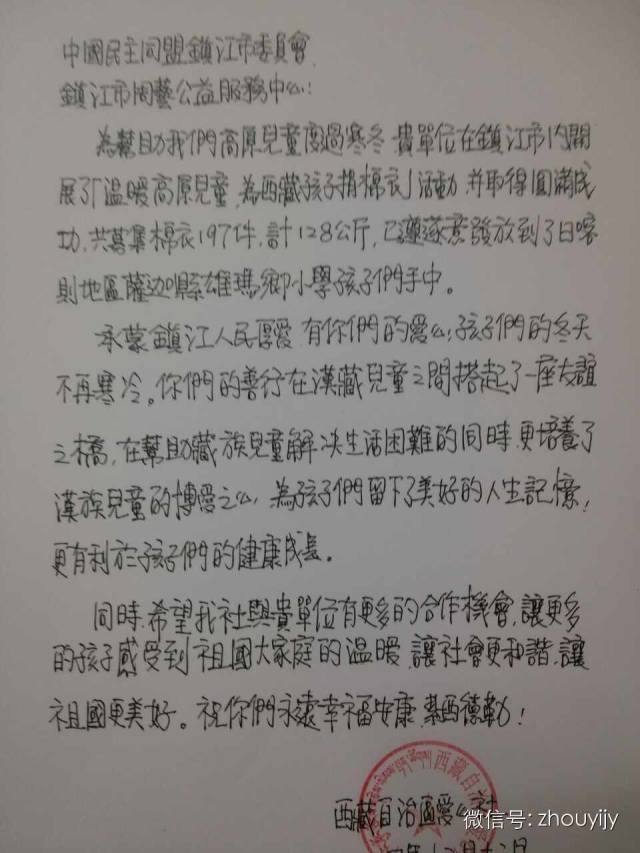 中國民主同盟鎮江市委員會
鎮江市閑藝公益服務中心:
為幫助我們高原兒童度過寒冬,貴單位在鎮江市內開
展了「溫暖高原兒童,為西藏孩子捐棉衣」活動,并取得圓滿成
功,共募集棉衣197件,計128公斤,已遵逐意發放到了日喀
則地區薩迦縣雄瑪鄉小學孩子們手中。
承蒙鎮江人民厚愛,有你們的愛心,孩子們的冬天
不再寒冷。你們的善行在漢藏兒童之間搭起了一座友誼
之橋,在幫助藏族兒童解決生活困難的同時,更培養了
漢族兒童的博愛之心,為孩子們留下了美好的人生記憶,
更有利於孩子們的健康成長。
同時,希望我社與貴單位有更多的合作機會,讓更多
的孩子感受到祖國大家庭的溫暖,讓社會更和諧,讓
祖國更美好。祝你們永遠幸福安康,紮西德勒!
西藏自
西藏自治區愛心社
微信号: zhouyijy